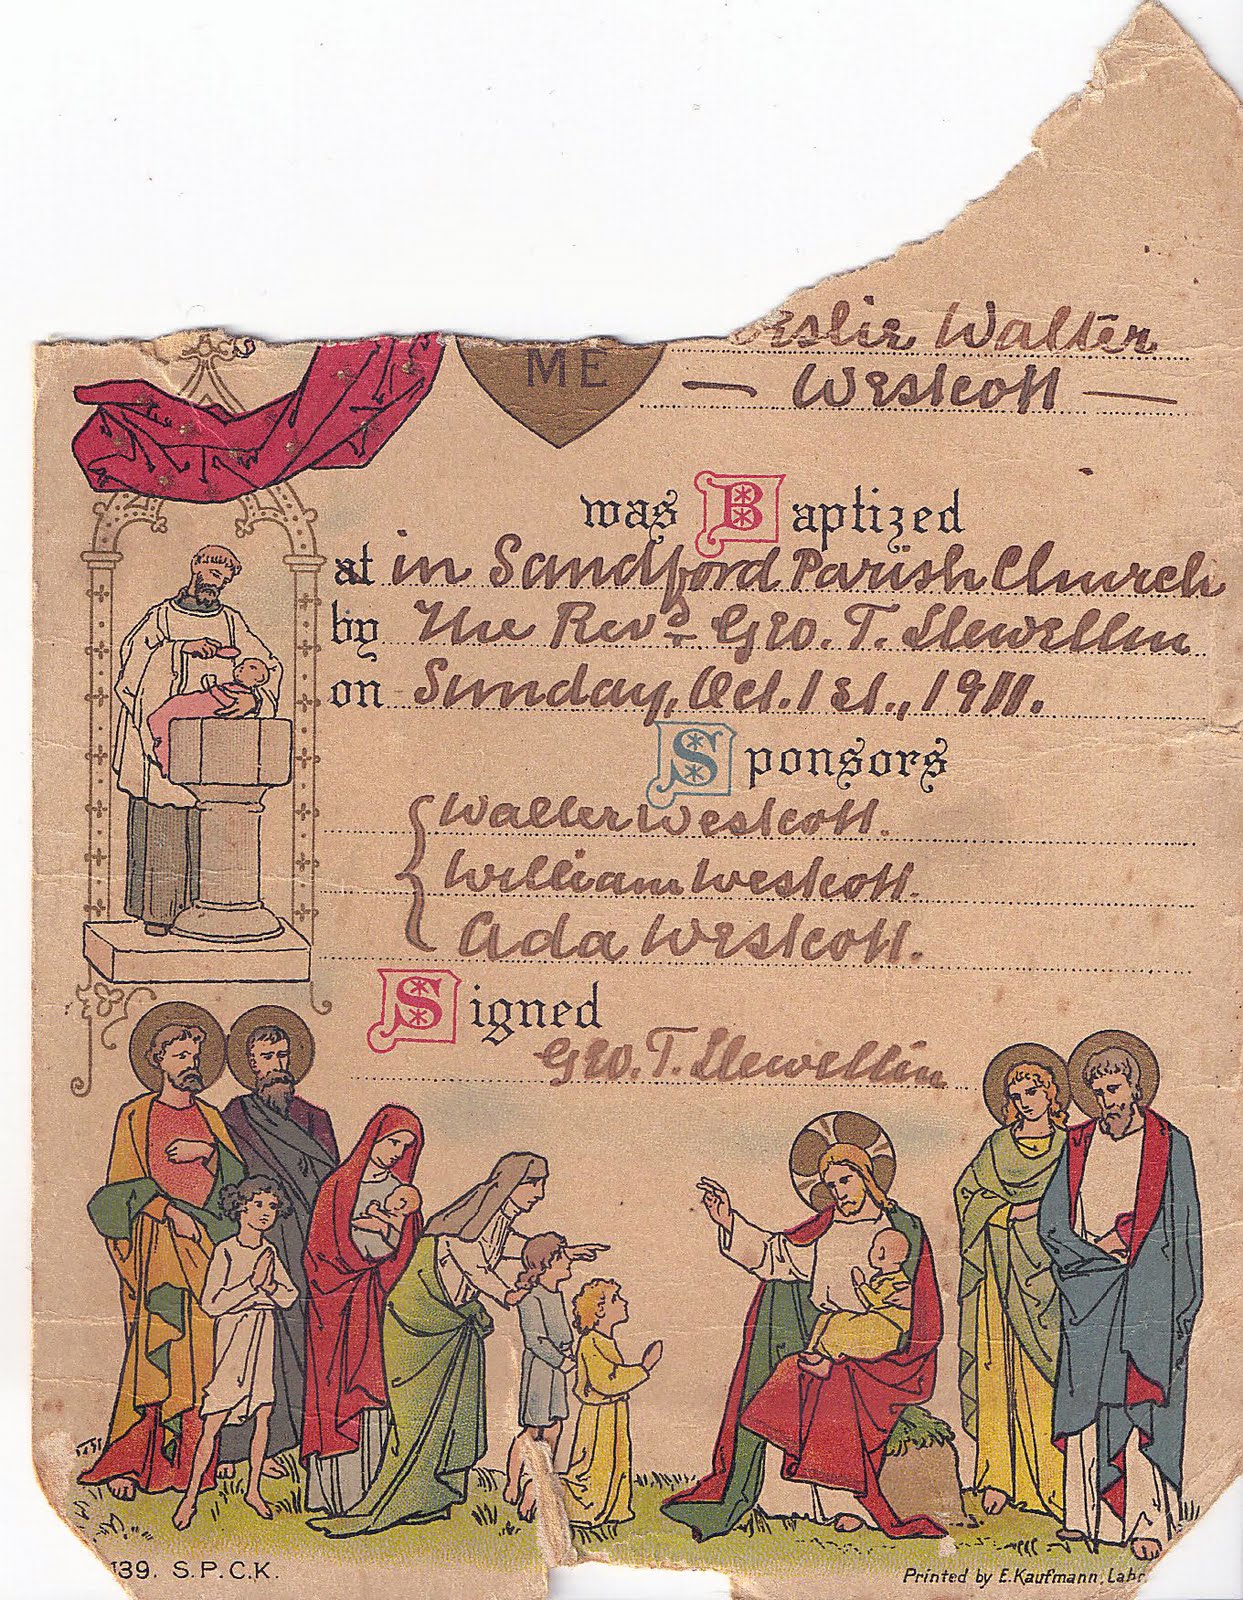 ME
eslie Walter
— Westcott —
was Baptized
at in Sandford Parish Church
by The Revd. Geo. T. Llewellin
on Sunday, Oct. 1st., 1911.
Sponsors
Walter Westcott.
William Westcott.
Ada Westcott.
Signed
Geo. T. Llewellin
139. S.P.C.K.
Printed by E.Kaufmann, Lahr